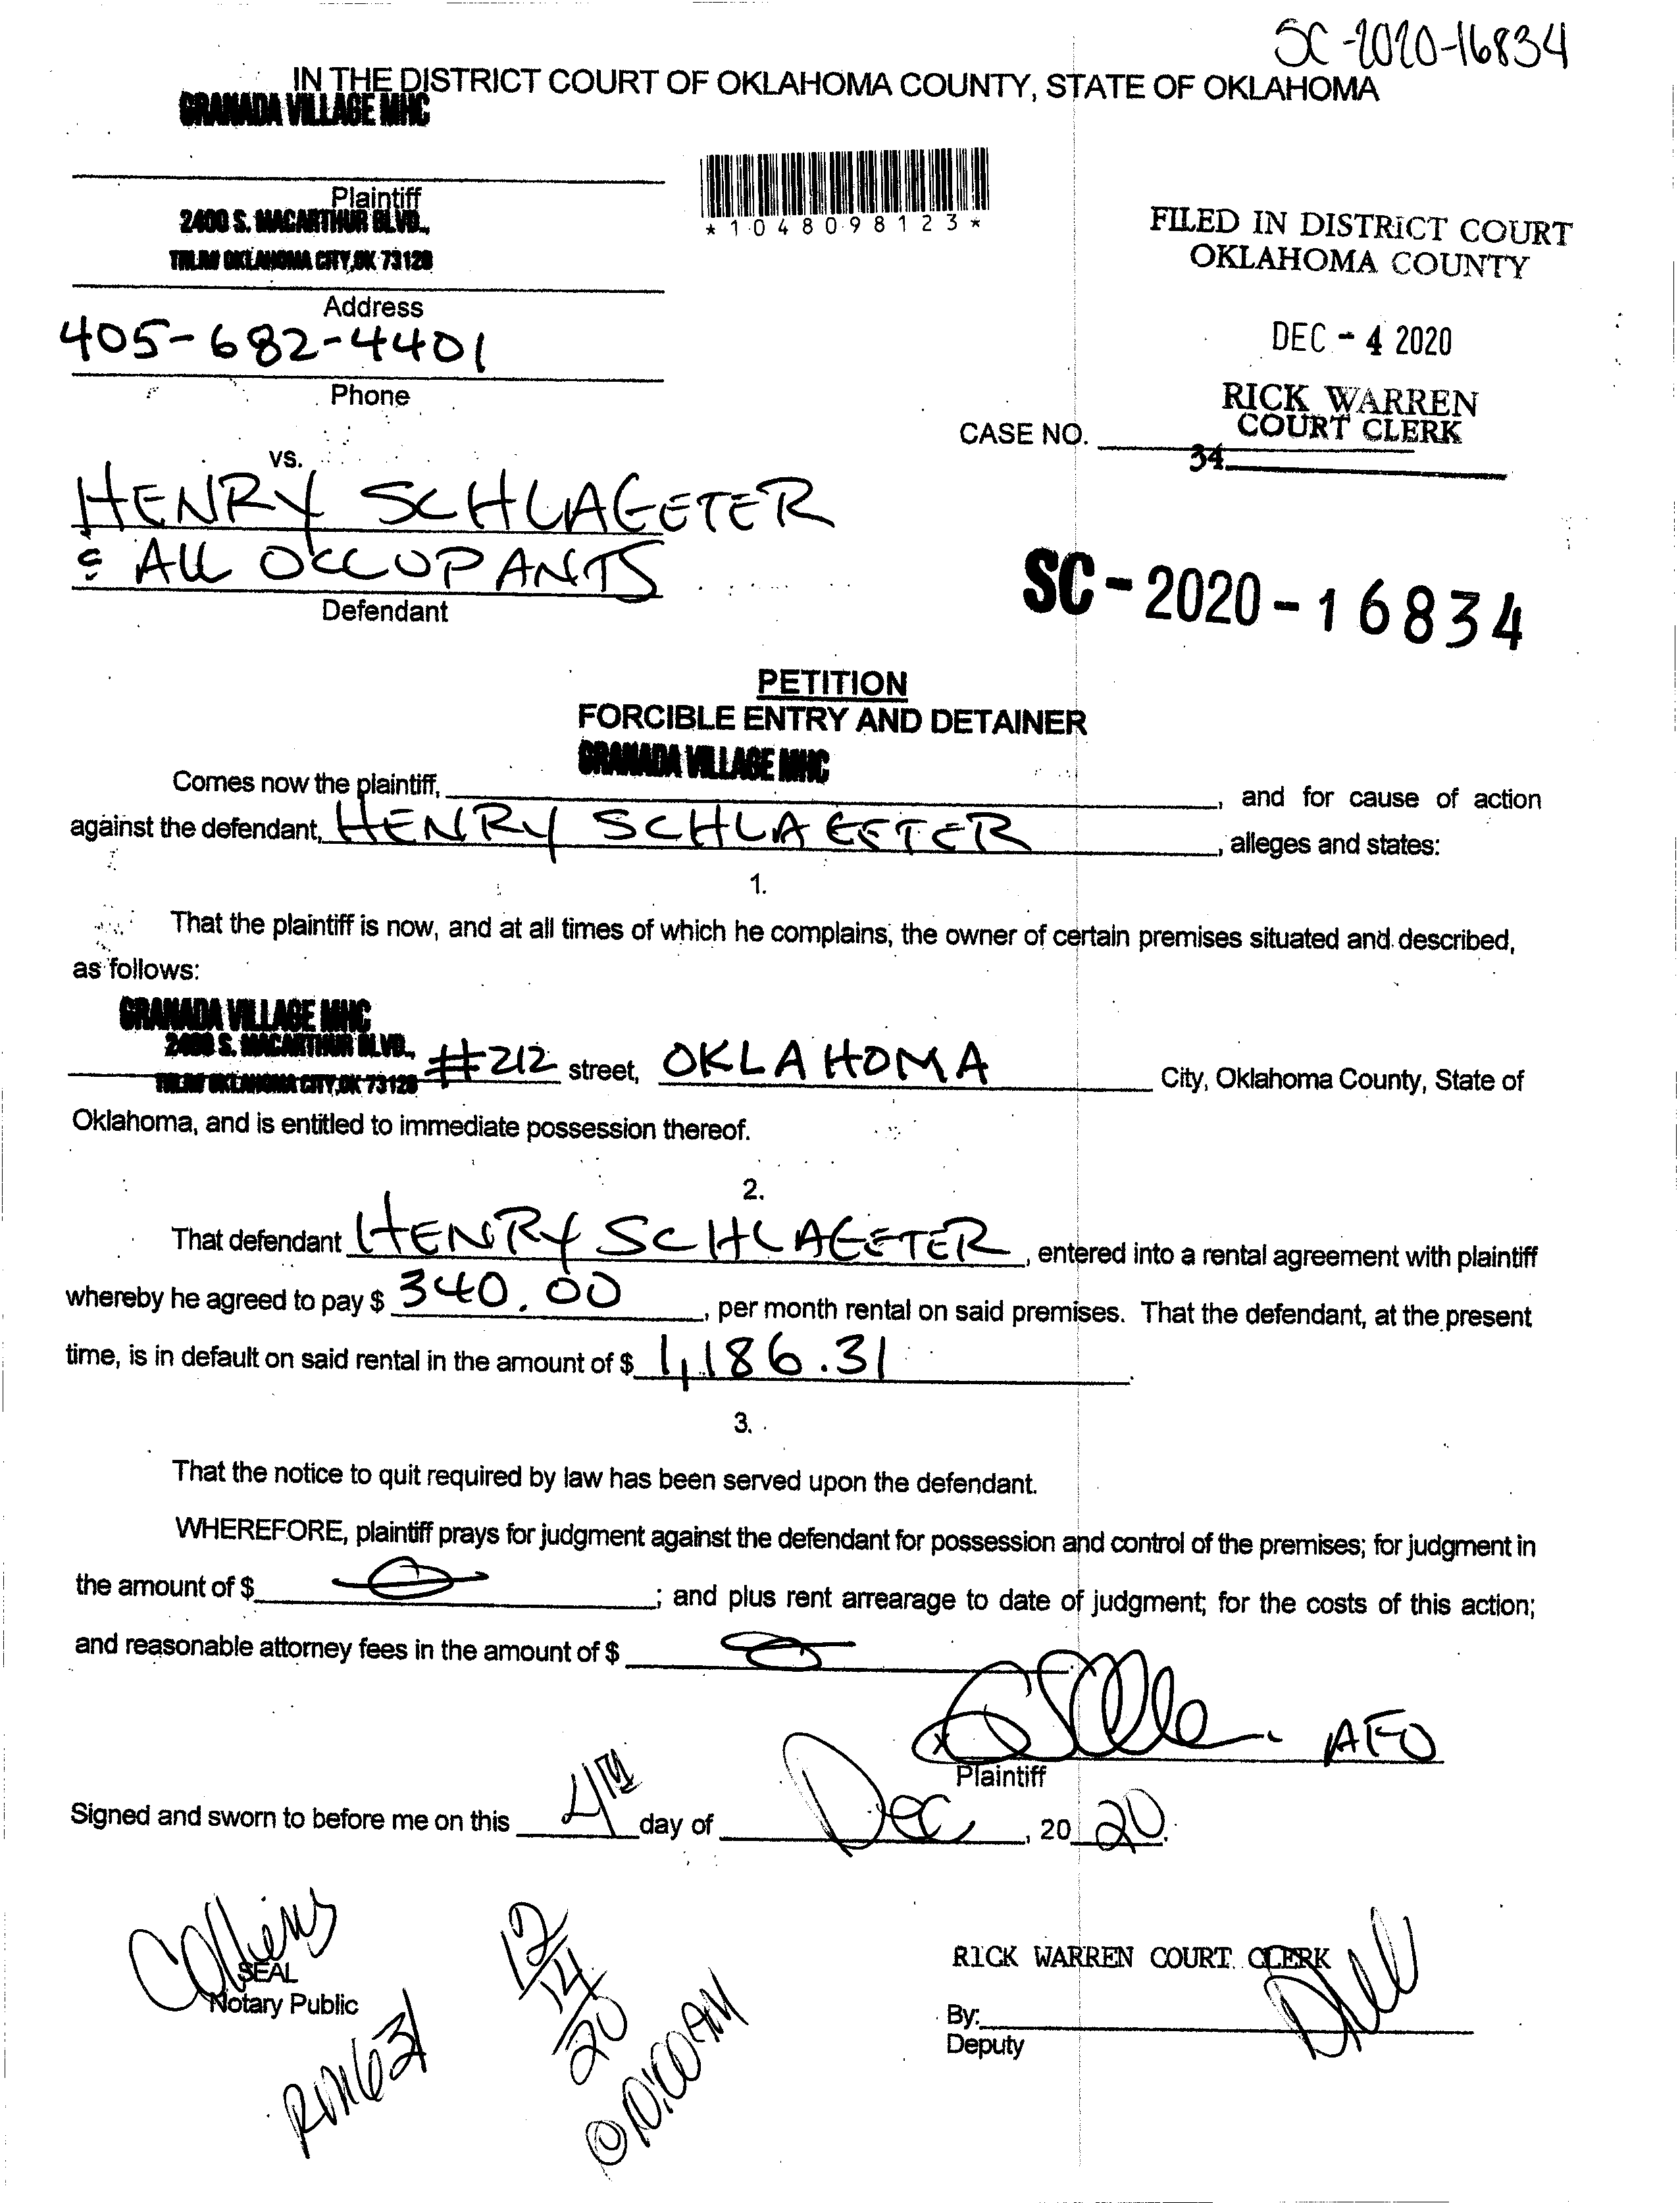 SC-2020-16834
IN THE DISTRICT COURT OF OKLAHOMA COUNTY, STATE OF OKLAHOMA
GRANADA VILLAGE MHC
Plaintiff
2400 S. MACARTHUR BLVD.,
OKLAHOMA CITY, OK 73128
*1048098123*
FILED IN DISTRICT COURT
OKLAHOMA COUNTY
Address
405-682-4401
DEC - 4 2020
Phone
RICK WARREN
COURT CLERK
CASE NO.
34
vs.
HENRY SCHLAGETER
& ALL OCCUPANTS
Defendant
SC-2020-16834
PETITION
FORCIBLE ENTRY AND DETAINER
GRANADA VILLAGE MHC
Comes now the plaintiff, , and for cause of action
against the defendant, HENRY SCHLAGETER, alleges and states:
1.
That the plaintiff is now, and at all times of which he complains, the owner of certain premises situated and described,
as follows:
GRANADA VILLAGE MHC
2400 S. MACARTHUR BLVD.,
OKLAHOMA CITY, OK 73128 #212 street, OKLAHOMA City, Oklahoma County, State of
Oklahoma, and is entitled to immediate possession thereof.
2.
That defendant HENRY SCHLAGETER, entered into a rental agreement with plaintiff
whereby he agreed to pay $ 340.00, per month rental on said premises. That the defendant, at the present
time, is in default on said rental in the amount of $ 1,186.31.
3.
That the notice to quit required by law has been served upon the defendant.
WHEREFORE, plaintiff prays for judgment against the defendant for possession and control of the premises; for judgment in
the amount of $ ; and plus rent arrearage to date of judgment; for the costs of this action;
and reasonable attorney fees in the amount of $
x AFO
Plaintiff
Signed and sworn to before me on this 4th day of Dec, 2020.
Collins
SEAL
Notary Public
Rm 631
12/14/20
@10:00AM
RICK WARREN COURT CLERK
By:
Deputy